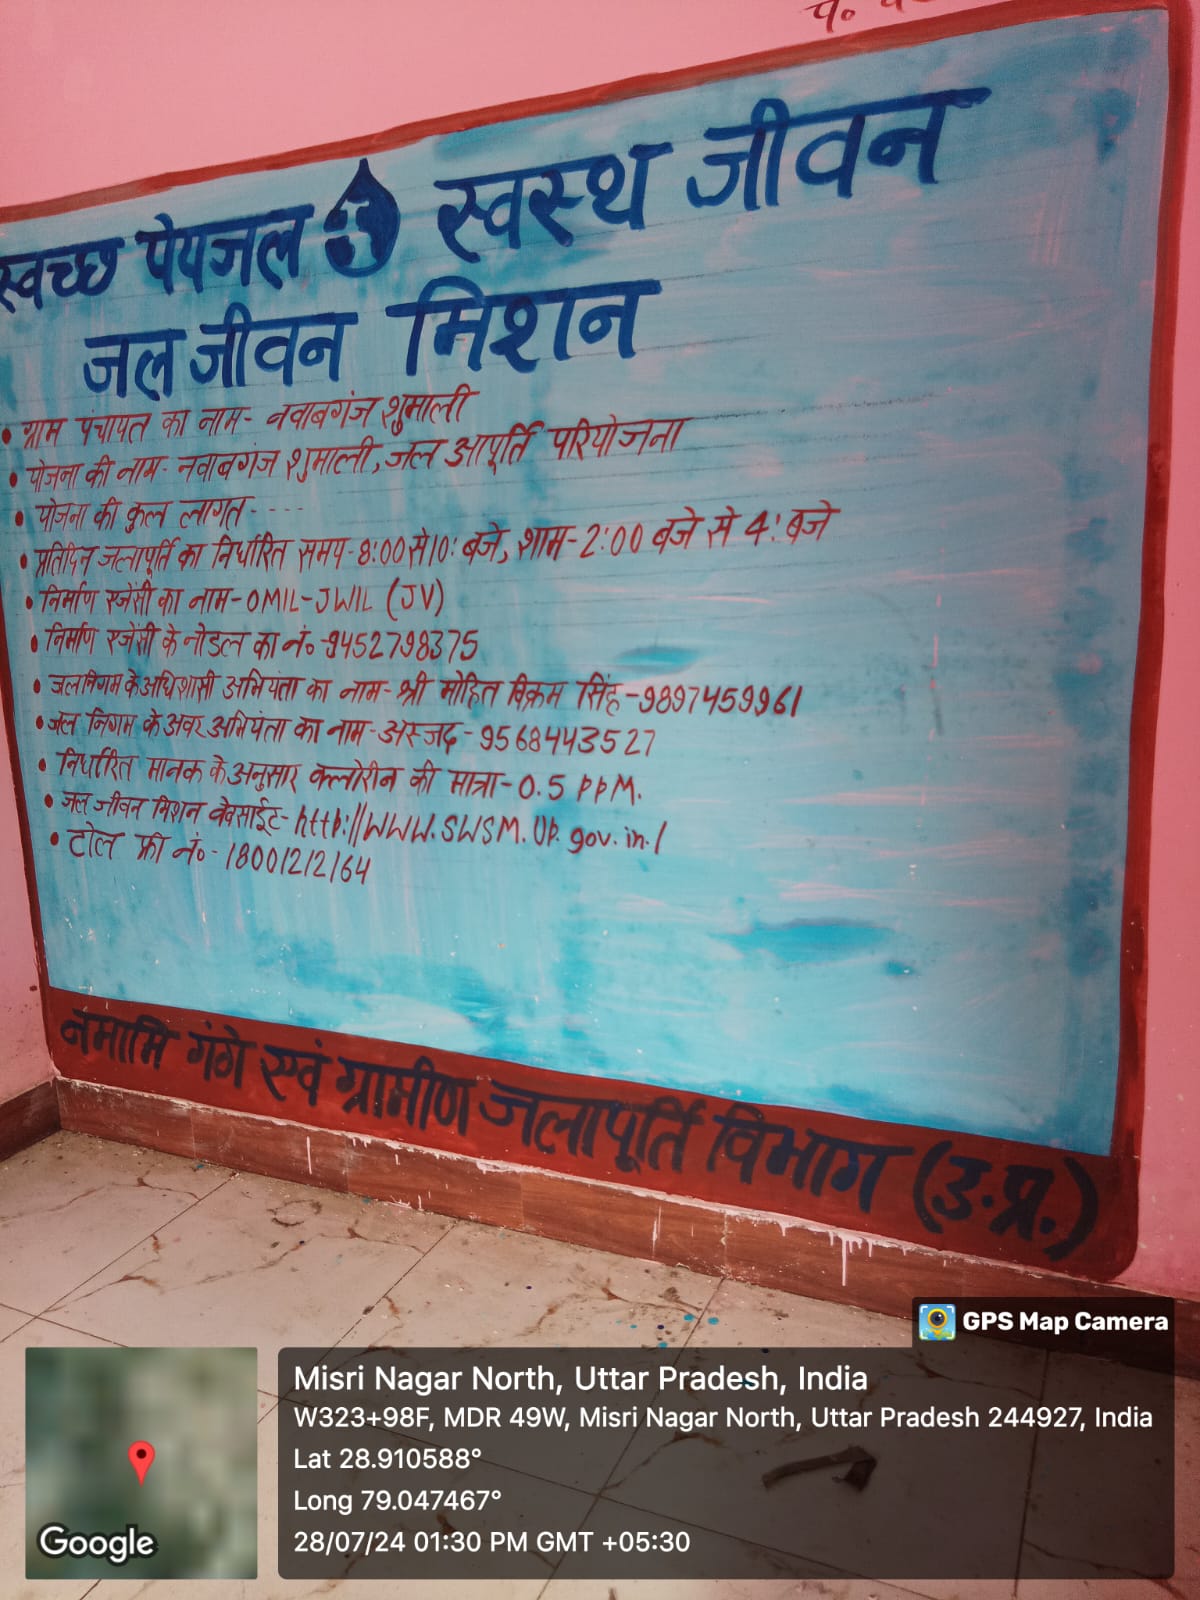 स्वच्छ पेयजल स्वस्थ जीवन
जल जीवन मिशन
• ग्राम पंचायत का नाम- नवाबगंज शुमाली
• योजना की नाम- नवाबगंज शुमाली, जल आपूर्ति परियोजना
• योजना की कुल लागत- - - -
• प्रतिदिन जलापूर्ति का निर्धारित समय- 8:00 से 10: बजे, शाम- 2:00 बजे से 4: बजे
• निर्माण एजेंसी का नाम- OMIL-JWIL (JV)
• निर्माण एजेंसी के नोडल का नं॰ -9452798375
• जलनिगम के अधिशासी अभियंता का नाम- श्री मोहित विक्रम सिंह-9897459961
• जल निगम के अवर अभियंता का नाम- अस्जद- 9568443527
• निर्धारित मानक के अनुसार क्लोरीन की मात्रा- 0.5 PPM.
• जल जीवन मिशन वेवसाईट- http://WWW.SWSM.UP.gov.in./
• टोल फ्री नं॰- 18001212164
नमामि गंगे एवं ग्रामीण जलापूर्ति विभाग (उ.प्र.)
GPS Map Camera
Misri Nagar North, Uttar Pradesh, India
W323+98F, MDR 49W, Misri Nagar North, Uttar Pradesh 244927, India
Lat 28.910588°
Long 79.047467°
28/07/24 01:30 PM GMT +05:30
Google